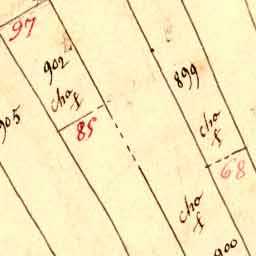 97
902
cho
f
905
85
899
cho
f
68
cho
f
900